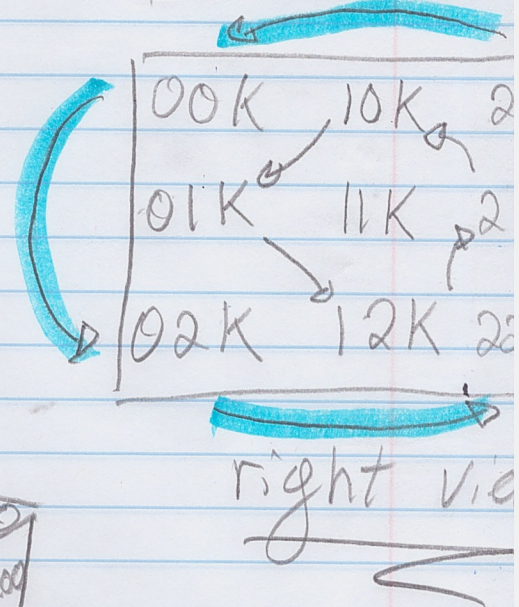 00K 10K 2
01K 11K 2
02K 12K 22
right vie